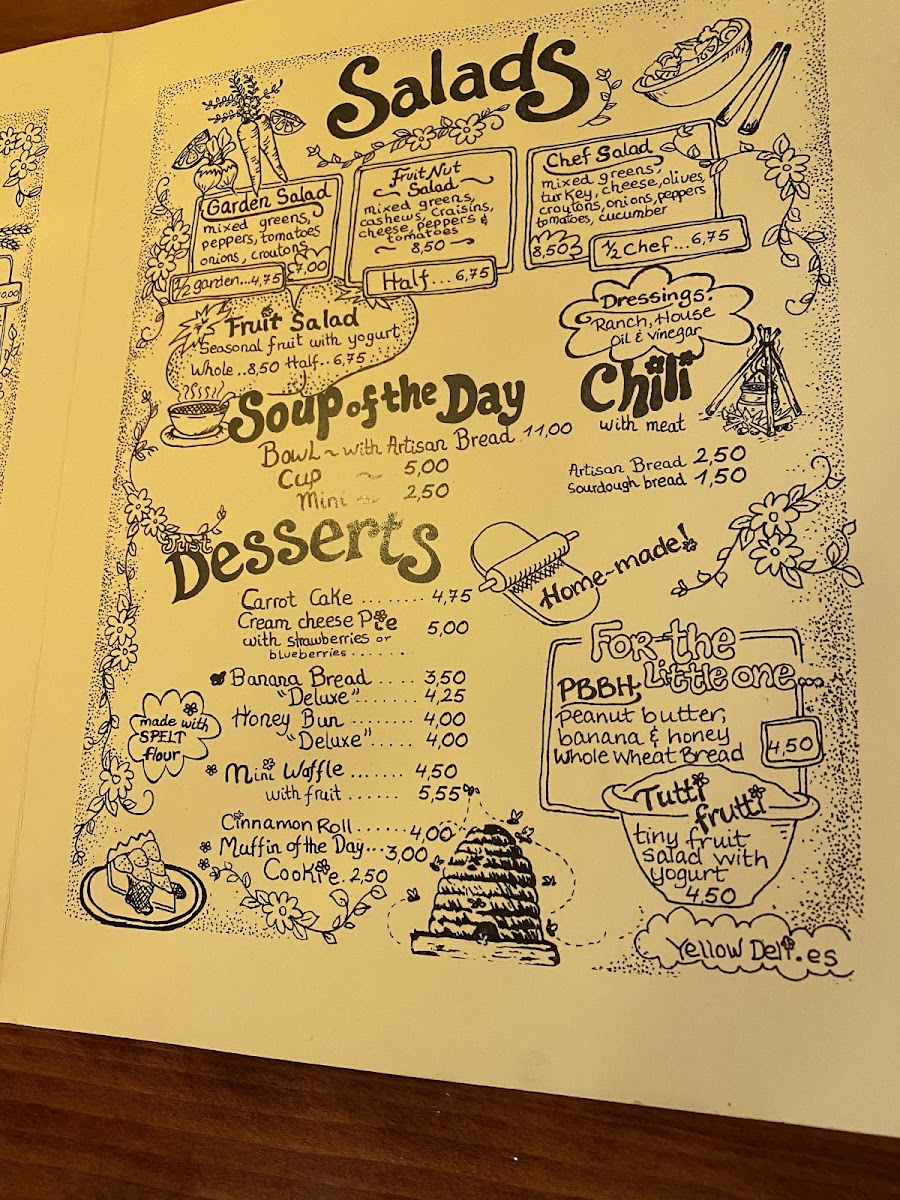 Salads
Garden Salad
mixed greens,
peppers, tomatoes
onions, croutons
7,00
1/2 garden...4,75
Fruit Nut
Salad
mixed greens,
cashews, craisins,
cheese, peppers &
tomatoes
8,50
Half...6,75
Chef Salad
mixed greens,
turkey, cheese, olives,
croutons, onions, peppers
tomatoes, cucumber
8,50
1/2 Chef...6,75
Fruit Salad
Seasonal fruit with yogurt
Whole..8,50 Half..6,75
Dressings:
Ranch, House
Oil & vinegar
Soup of the Day
Bowl ~ with Artisan Bread 11,00
Cup ~ 5,00
Mini ~ 2,50
Chili
with meat
Artisan Bread 2,50
Sourdough bread 1,50
Just
Desserts
Home-made!
Carrot Cake ........ 4,75
Cream cheese Pie 5,00
with strawberries or
blueberries.......
Banana Bread ..... 3,50
"Deluxe" ...... 4,25
Honey Bun ....... 4,00
"Deluxe"..... 4,00
made with
SPELT
flour
Mini Waffle ....... 4,50
with fruit ...... 5,55
Cinnamon Roll ...... 4,00
Muffin of the Day...3,00
Cookie.2,50
For the
Little one...
PBBH;
peanut butter,
banana & honey
Whole Wheat Bread
4,50
Tutti
frutti
tiny fruit
salad with
yogurt
4,50
Yellow Deli.es